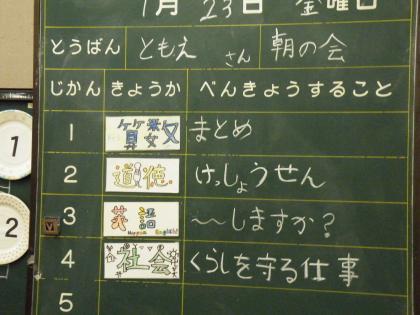 1月 23日 金曜日
とうばん ともえ さん 朝の会
じかん きょうか べんきょうすること
1 算数 まとめ
2 道徳 けっしょうせん
3 英語 Happy English! 〜しますか?
4 社会 くらしを守る仕事
5
1
2